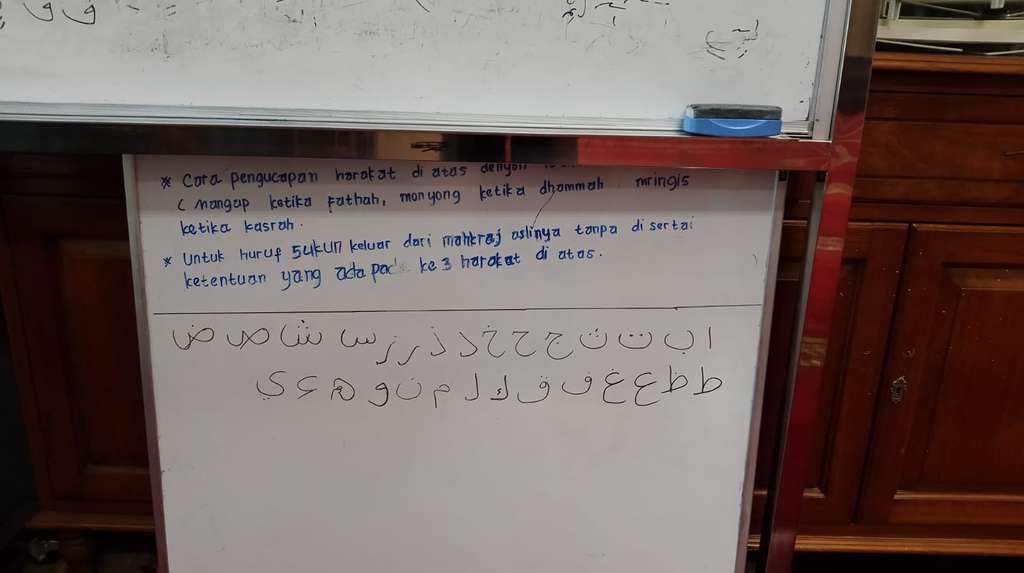 * Cara pengucapan harokat di atas dengan
( mangap ketika fathah, monyong ketika dhammah mringis
ketika kasrah.
* Untuk huruf sukun keluar dari mahkraj aslinya tanpa disertai
ketentuan yang ada pada ke 3 harokat di atas.
ا ب ت ث ج ح خ د ذ ر ز س ش ص ض
ط ظ ع غ ف ق ك ل م ن و ه ء ي